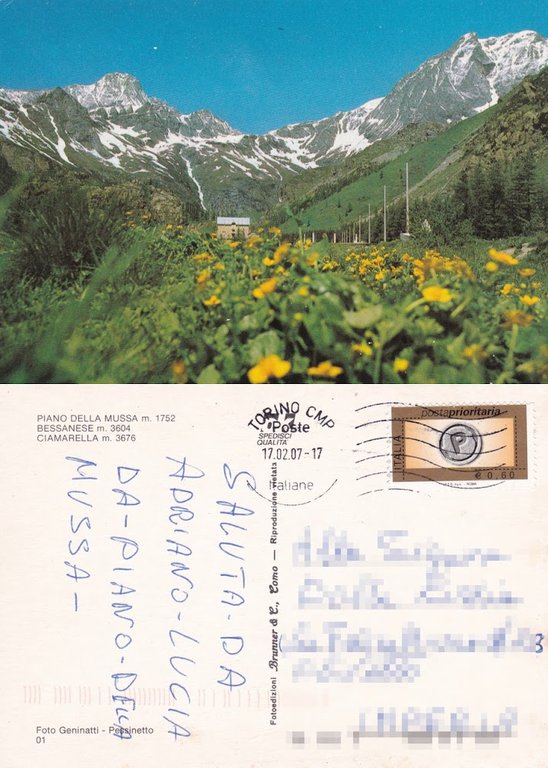 PIANO DELLA MUSSA m. 1752
BESSANESE m. 3604
CIAMARELLA m. 3676
SALUTA-DA
ADRIANO-LUCIA
DA-PIANO-DELLA
MUSSA-
Foto Geninatti - Pessinetto
01
Fotoedizioni Brunner & C., Como - Riproduzione vietata
TORINO CMP
Poste
SPEDISCI
QUALITÀ
17.02.07-17
Italiane
postaprioritaria
ITALIA
P
€ 0,60